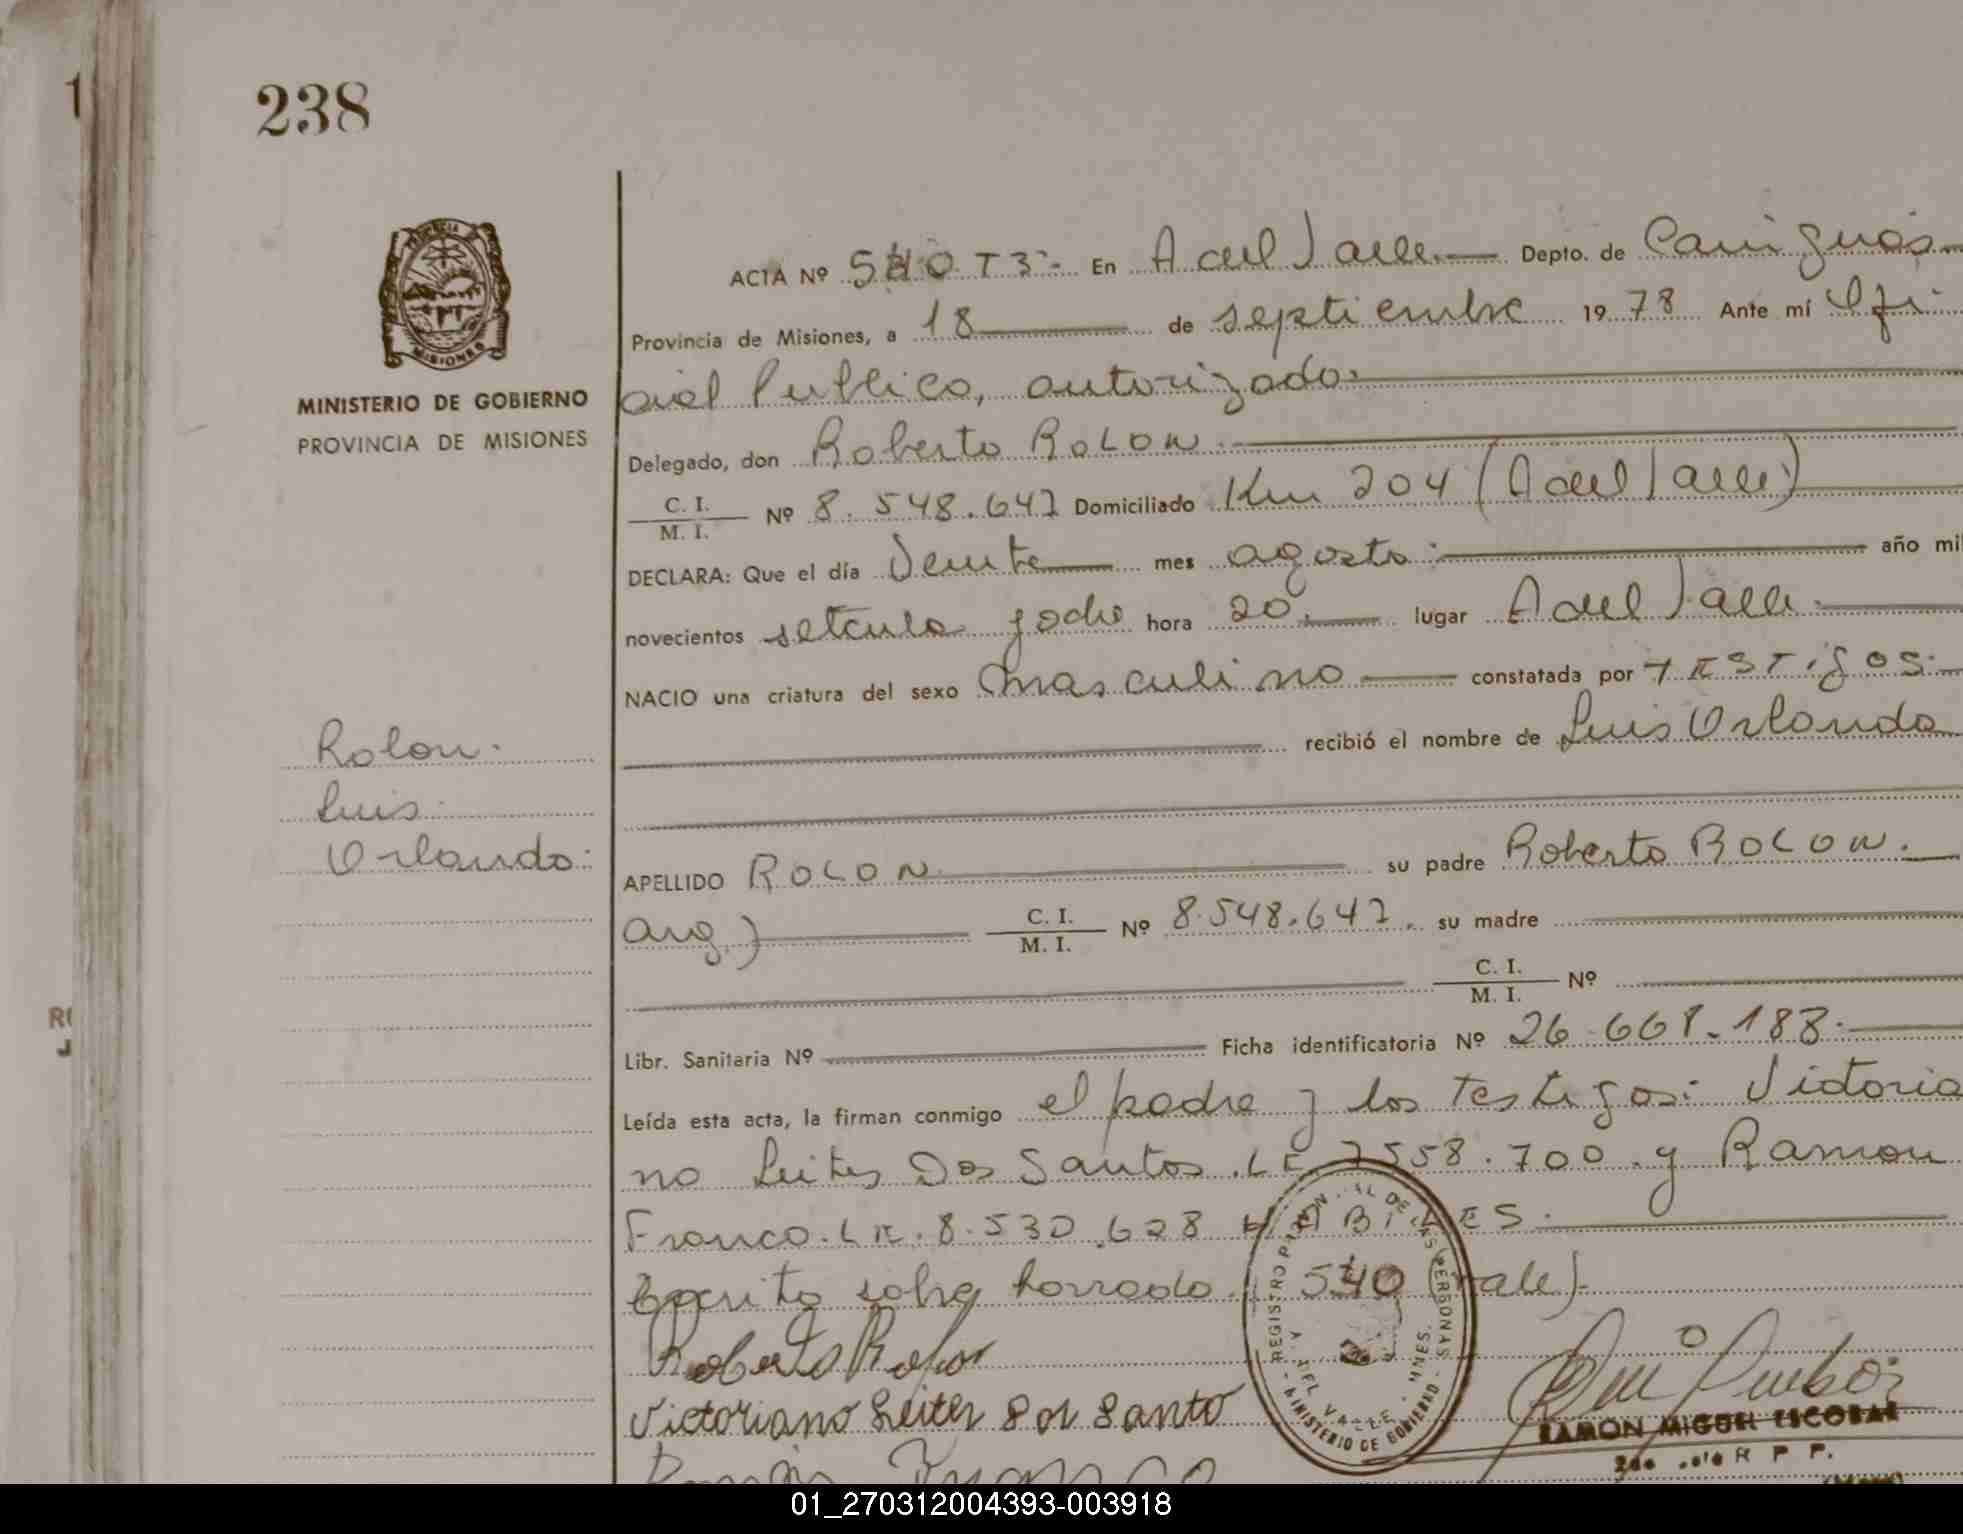 238
PROVINCIA DE
MISIONES
MINISTERIO DE GOBIERNO
PROVINCIA DE MISIONES
ACTA Nº 540 T 3 - En A del Valle Depto. de Cainguás
Provincia de Misiones, a 18 de septiembre 1978 Ante mí Ofi
cial Publico, autorizado
Delegado, don Roberto ROLON
C. I.
M. I. Nº 8.548.647 Domiciliado Km 204 (A del Valle)
DECLARA: Que el día Veinte mes agosto año mil
novecientos setenta y ocho hora 20 lugar A del Valle
NACIO una criatura del sexo masculino constatada por TESTIGOS
recibió el nombre de Luis Orlando
Rolon
Luis
Orlando
APELLIDO ROLON su padre Roberto ROLON
arg.) C. I.
M. I. Nº 8.548.647 su madre
C. I.
M. I. Nº
Libr. Sanitaria Nº Ficha identificatoria Nº 26.668.188
Leída esta acta, la firman conmigo el padre y los testigos: Victoria
no Leites Dos Santos LE 7558.700 y Ramon
Franco. LE. 8.530.628 HABILES.
Escrito sobre borrado 540 (vale)
Roberto Rolon
Victoriano Leites Dos Santo
Ramón Franco
REGISTRO PROVINCIAL DE LAS PERSONAS
A. DEL VALLE - MNES.
MINISTERIO DE GOBIERNO
RAMON MIGUEL ESCOBAR
R P P.
01_270312004393-003918